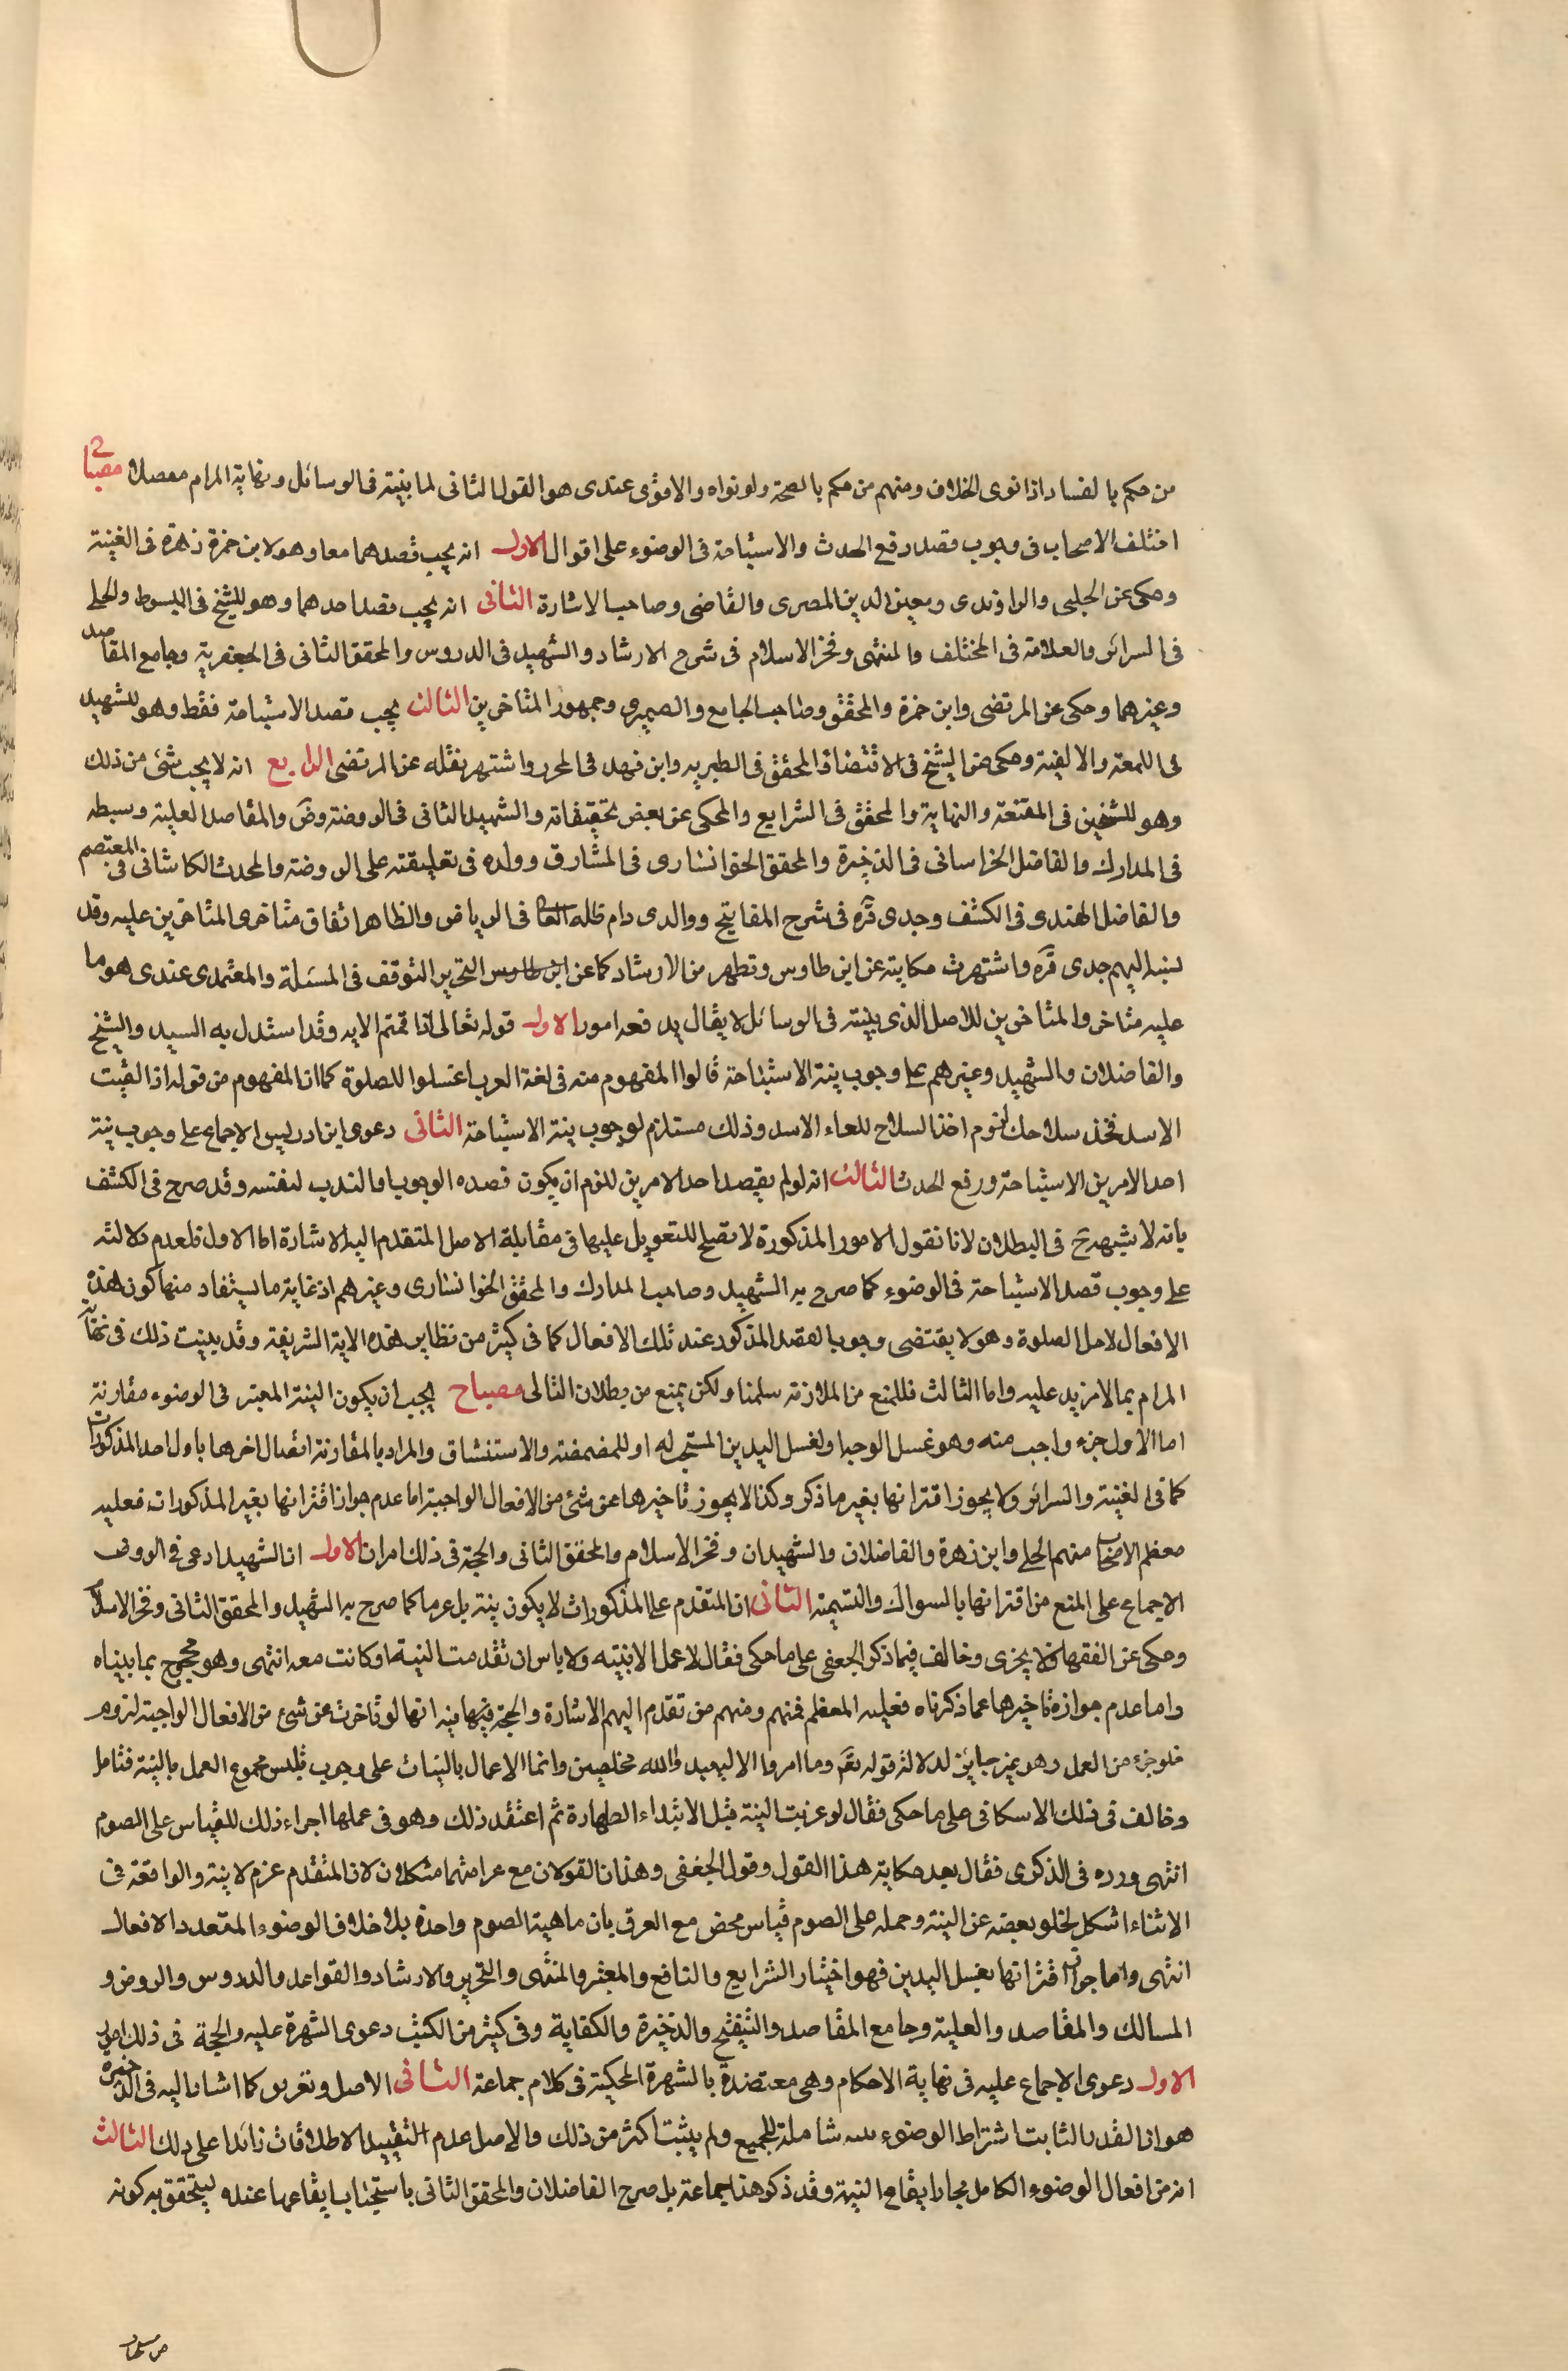 من حكم بالفساد اذا نوى الخلاف ومنهم من حكم بالصحة ولو نواه والاقوى عندى هو القول الثانى لما بينته فى الوسائل ونهاية المرام مفصلا مصباح
اختلف الاصحاب فى وجوب قصد رفع الحدث والاستباحة فى الوضوء على اقوال الاول انه يجب قصدهما معا وهو لابن حمزة زهرة فى الغنية
وحكى عن الحلبى والراوندى ومعين الدين المصرى والقاضى وصاحب الاشارة الثانى انه يجب قصد احدهما وهو للشيخ فى المبسوط والحلى
فى السرائر والعلامة فى المختلف والمنتهى وفخر الاسلام فى شرح الارشاد والشهيد فى الدروس والمحقق الثانى فى الجعفرية وجامع المقاصد
وغيرهما وحكى عن المرتضى وابن حمزة والمحقق وصاحب الجامع والصيمرى وجمهور المتاخرين الثالث يجب قصد الاستباحة فقط وهو للشهيد
فى اللمعة والالفية وحكى عن الشيخ فى الاقتصاد والمحقق فى الطبرية وابن فهد فى المحرر واشتهر نقله عن المرتضى الرابع انه لا يجب شئ من ذلك
وهو للشيخين فى المقنعة والنهاية والمحقق فى الشرايع والمحكى عن بعض تحقيقاته والشهيد الثانى فى الروضة وض والمقاصد العلية وسبطه
فى المدارك والفاضل الخراسانى فى الذخيرة والمحقق الخوانسارى فى المشارق وولده فى تعليقته على الروضة والمحدث الكاشانى فى المعتصم
والفاضل الهندى فى الكشف وجدى قره فى شرح المفاتيح ووالدى دام ظله العالى فى الرياض والظاهر اتفاق متاخرى المتاخرين عليه وقد
نسبه اليهم جدى قره واشتهرت حكايته عن ابن طاوس وتظهر من الارشاد كما عن ابن طاوس التحرير التوقف فى المسئلة والمعتمدى عندى هو ما
عليه متاخروا المتاخرين للاصل الذى بينته فى الوسائل لا يقال يدفعه امور الاول قوله تعالى اذا قمتم الايه وقد استدل به السيد والشيخ
والفاضلان والشهيد وغيرهم على وجوب نية الاستباحة قالوا المفهوم منه فى لغة العرب اغتسلوا للصلوة كما ان المفهوم من قوله اذا لقيت
الاسد فخذ سلاحك لزوم اخذ السلاح للقاء الاسد وذلك مستلزم لوجوب نية الاستباحة الثانى دعوى ابن ادريس الاجماع على وجوب نية
احد الامرين الاستباحة ورفع الحدث الثالث انه لو لم يقصد احد الامرين للزم ان يكون قصده الوجوب او الندب لنفسه وقد صرح فى الكشف
بانه لا شبهة ح فى البطلان لانا نقول الامور المذكورة لا تصلح للتعويل عليها فى مقابلة الاصل المتقدم اليه الاشارة اما الاول فلعدم دلالته
على وجوب قصد الاستباحة فى الوضوء كما صرح به الشهيد وصاحب المدارك والمحقق الخوانسارى وغيرهم اذ غاية ما يستفاد منها كون هذه
الافعال لاجل الصلوة وهو لا يقتضى وجوب القصد المذكور عند تلك الافعال كما فى كثير من نظاير هذه الاية الشريفة وقد بينت ذلك فى نهاية
المرام بما لا مزيد عليه واما الثالث فللمنع من الملازمة سلمنا ولكن يمنع من بطلان التالى مصباح يجب ان يكون النية المعتبر فى الوضوء مقارنة
اما الاول جزء واجب منه وهو غسل الوجه او لغسل اليدين المستحب له او للمضمضة والاستنشاق والمراد بالمقارنة اتصال اخرها باول احد المذكورات
كما فى الغنية والسرائر ولا يجوز اقترانها بغير ما ذكر وكذا لا يجوز تاخيرها عن شئ من الافعال الواجبة اما عدم جواز اقترانها بغير المذكورات فعليه
معظم الاصحاب منهم الحلى وابن زهرة والفاضلان والشهيدان وفخر الاسلام والمحقق الثانى والحجة فى ذلك امران الاول ان الشهيد ادعى فى الروض
الاجماع على المنع من اقترانها بالسواك والتسمية الثانى ان المتقدم على المذكورات لا يكون نية بل عزما كما صرح به الشهيد والمحقق الثانى وفخر الاسلام
وحكى عن الفقهاء فلا يجزى وخالف فيما ذكر الجعفى على ما حكى فقال لا عمل الا بنية ولا باس ان تقدمت النية او كانت معه انتهى وهو محجوج بما بيناه
واما عدم جوازه تاخيرها عما ذكرناه فعليه المعظم فمنهم ومنهم من تقدم اليهم الاشارة والحجة فيها فيه انها لو تاخرت عن شئ من الافعال الواجبة لزوم
خلو جزء من العمل وهو غير جايز لدلالة قوله تعم وما امروا الا ليعبدوا الله مخلصين وانما الاعمال بالنيات على وجوب تلبس مجموع العمل بالنية فتامل
وخالف فى ذلك الاسكافى على ما حكى فقال لو عزبت النية قبل الابتداء الطهارة ثم اعتقد ذلك وهو فى عملها اجراء ذلك للقياس على الصوم
انتهى ورده فى الذكرى فقال بعد حكاية هذا القول وقول الجعفى وهذان القولان مع غرابتهما مشكلان لان المتقدم عزم لا نية والواقعة فى
الاثناء اشكل لخلو بعضه عن النية وحمله على الصوم قياس محض مع الفرق بان ماهية الصوم واحدة بلا خلاف الوضوء المتعدد الافعال
انتهى واما جواز اقترانها بغسل اليدين فهو اختيار الشرايع والنافع والمعتبر والمنتهى والتحرير والارشاد والقواعد والدروس والروض و
المسالك والمقاصد والعلية وجامع المقاصد والتنقيح والذخيرة والكفاية وفى كثير من الكتب دعوى الشهرة عليه والحجة فى ذلك امور
الاول دعوى الاجماع عليه فى نهاية الاحكام وهى معتضدة بالشهرة المحكية فى كلام جماعة الثانى الاصل وتقريره كما اشار اليه فى الذخيرة
هو ان القدر الثابت اشتراط الوضوء بنية شاملة للجميع ولم يثبت اكثر من ذلك والاصل عدم التقييد الاطلاقات زائدا على ذلك الثالث
انه من افعال الوضوء الكامل فجاز ايقاع النية وقد ذكر هذا جماعة بل صرح الفاضلان والمحقق الثانى باستحباب ايقاعها عنده ليتحقق به كونه